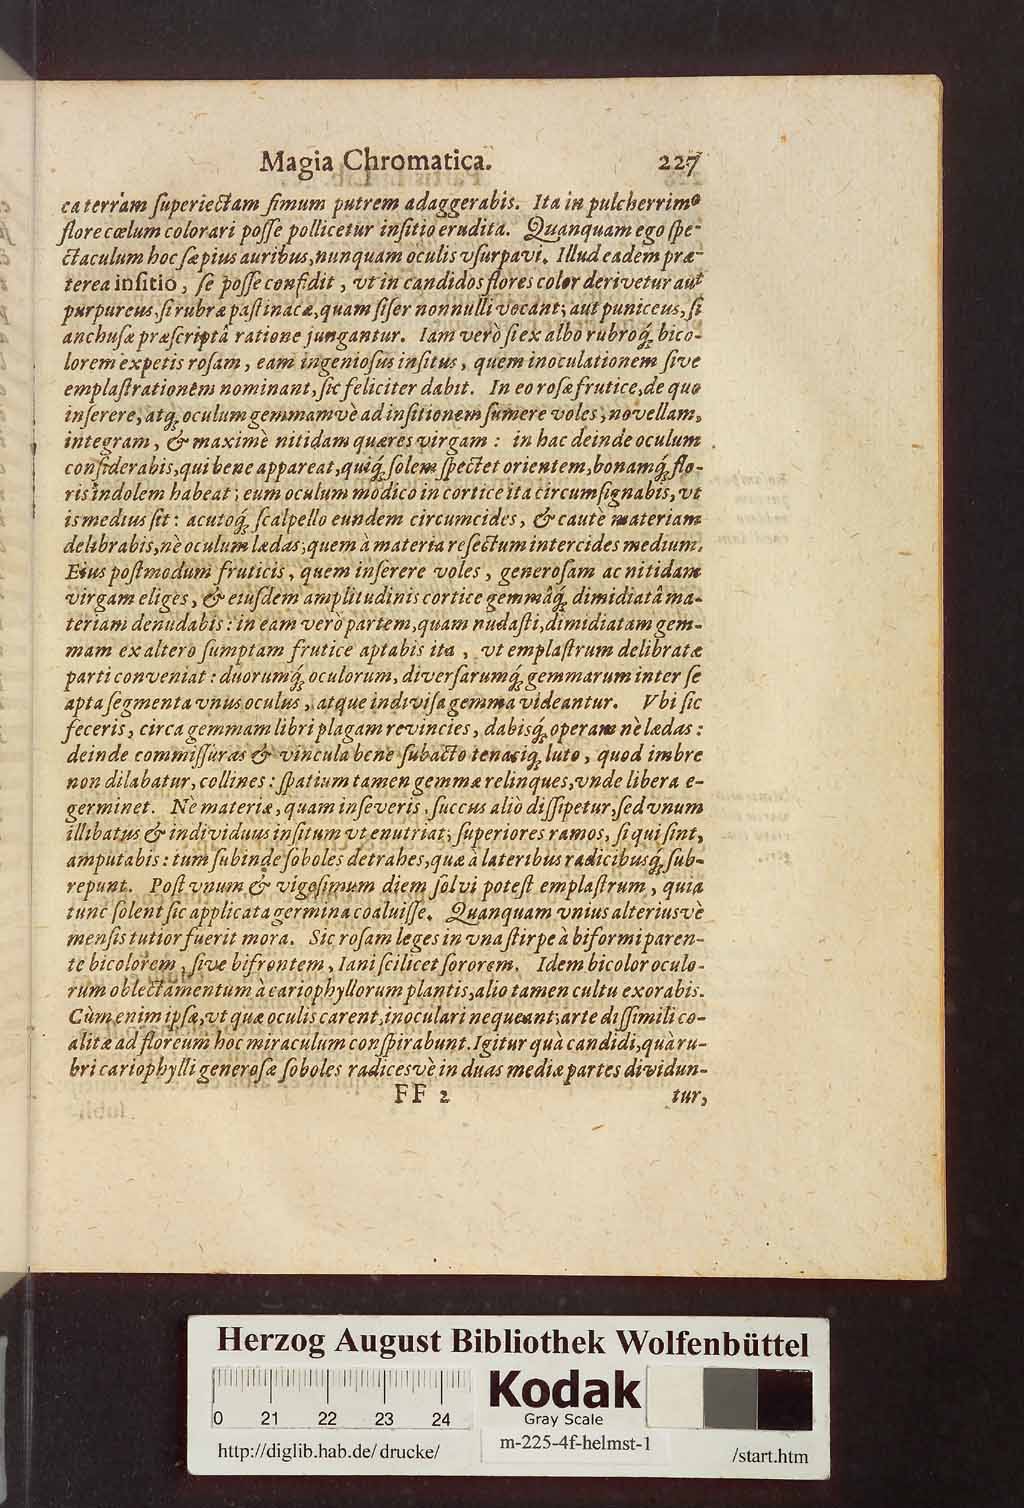 Magia Chromatica. 227
ca terram ſuperiectam ſimum putrem adaggerabis. Ita in pulcherrimo
flore cœlum colorari poſſe pollicetur inſitio erudita. Quanquam ego ſpe-
ctaculum hoc ſæpius auribus, nunquam oculis vſurpavi. Illud eadem præ-
terea inſitio, ſe poſſe confidit, vt in candidos flores color derivetur aut
purpureus, ſi rubræ paſtinacæ, quam ſiſer nonnulli vocant; aut puniceus, ſi
anchuſæ præſcriptâ ratione jungantur. Iam verò ſi ex albo rubroq́; bico-
lorem expetis roſam, eam ingenioſus inſitus, quem inoculationem ſive
emplaſtrationem nominant, ſic feliciter dabit. In eo roſæ frutice, de quo
inſerere, atq; oculum gemmamvè ad inſitionem ſumere voles, novellam,
integram, & maximè nitidam quæres virgam: in hac deinde oculum
conſiderabis, qui bene appareat, quiq́; ſolem ſpectet orientem, bonamq́; flo-
ris indolem habeat; eum oculum modico in cortice ita circumſignabis, vt
is medius ſit: acutoq́; ſcalpello eundem circumcides, & cautè materiam
delibrabis, nè oculum lædas; quem à materia reſectum intercides medium.
Eius poſtmodum fruticis, quem inſerere voles, generoſam ac nitidam
virgam eliges, & eiuſdem amplitudinis cortice gemmâq́; dimidiatâ ma-
teriam denudabis: in eam verò partem, quam nudaſti, dimidiatam gem-
mam ex altero ſumptam frutice aptabis ita, vt emplaſtrum delibratæ
parti conveniat: duorumq́; oculorum, diverſarumq́; gemmarum inter ſe
apta ſegmenta vnus oculus, atque indiviſa gemma videantur. Vbi ſic
feceris, circa gemmam libri plagam revincies, dabisq́; operam nè lædas:
deinde commiſſuras & vincula bene ſubacto tenaciq; luto, quod imbre
non dilabatur, collines: ſpatium tamen gemmæ relinques, vnde libera e-
germinet. Nè materiæ, quam inſeveris, ſuccus aliò diſſipetur, ſed vnum
illibatus & individuus inſitum vt enutriat; ſuperiores ramos, ſi qui ſint,
amputabis: tum ſubinde ſoboles detrahes, quæ à lateribus radicibusq́; ſub-
repunt. Poſt vnum & vigeſimum diem ſolvi poteſt emplaſtrum, quia
tunc ſolent ſic applicata germina coaluiſſe. Quanquam vnius alteriusvè
menſis tutior fuerit mora. Sic roſam leges in vna ſtirpe à biformi paren-
te bicolorem, ſive bifrontem, Iani ſcilicet ſororem. Idem bicolor oculo-
rum oblectamentum à cariophyllorum plantis, alio tamen cultu exorabis.
Cùm enim ipſæ, vt quæ oculis carent, inoculari nequeant; arte diſſimili co-
alitæ ad floreum hoc miraculum conſpirabunt. Igitur quà candidi, quà ru-
bri cariophylli generoſæ ſoboles radicesvè in duas mediæ partes dividun-
FF 2 tur,
Herzog August Bibliothek Wolfenbüttel
0 21 22 23 24
Kodak
Gray Scale
http://diglib.hab.de/drucke/
m-225-4f-helmst-1
/start.htm